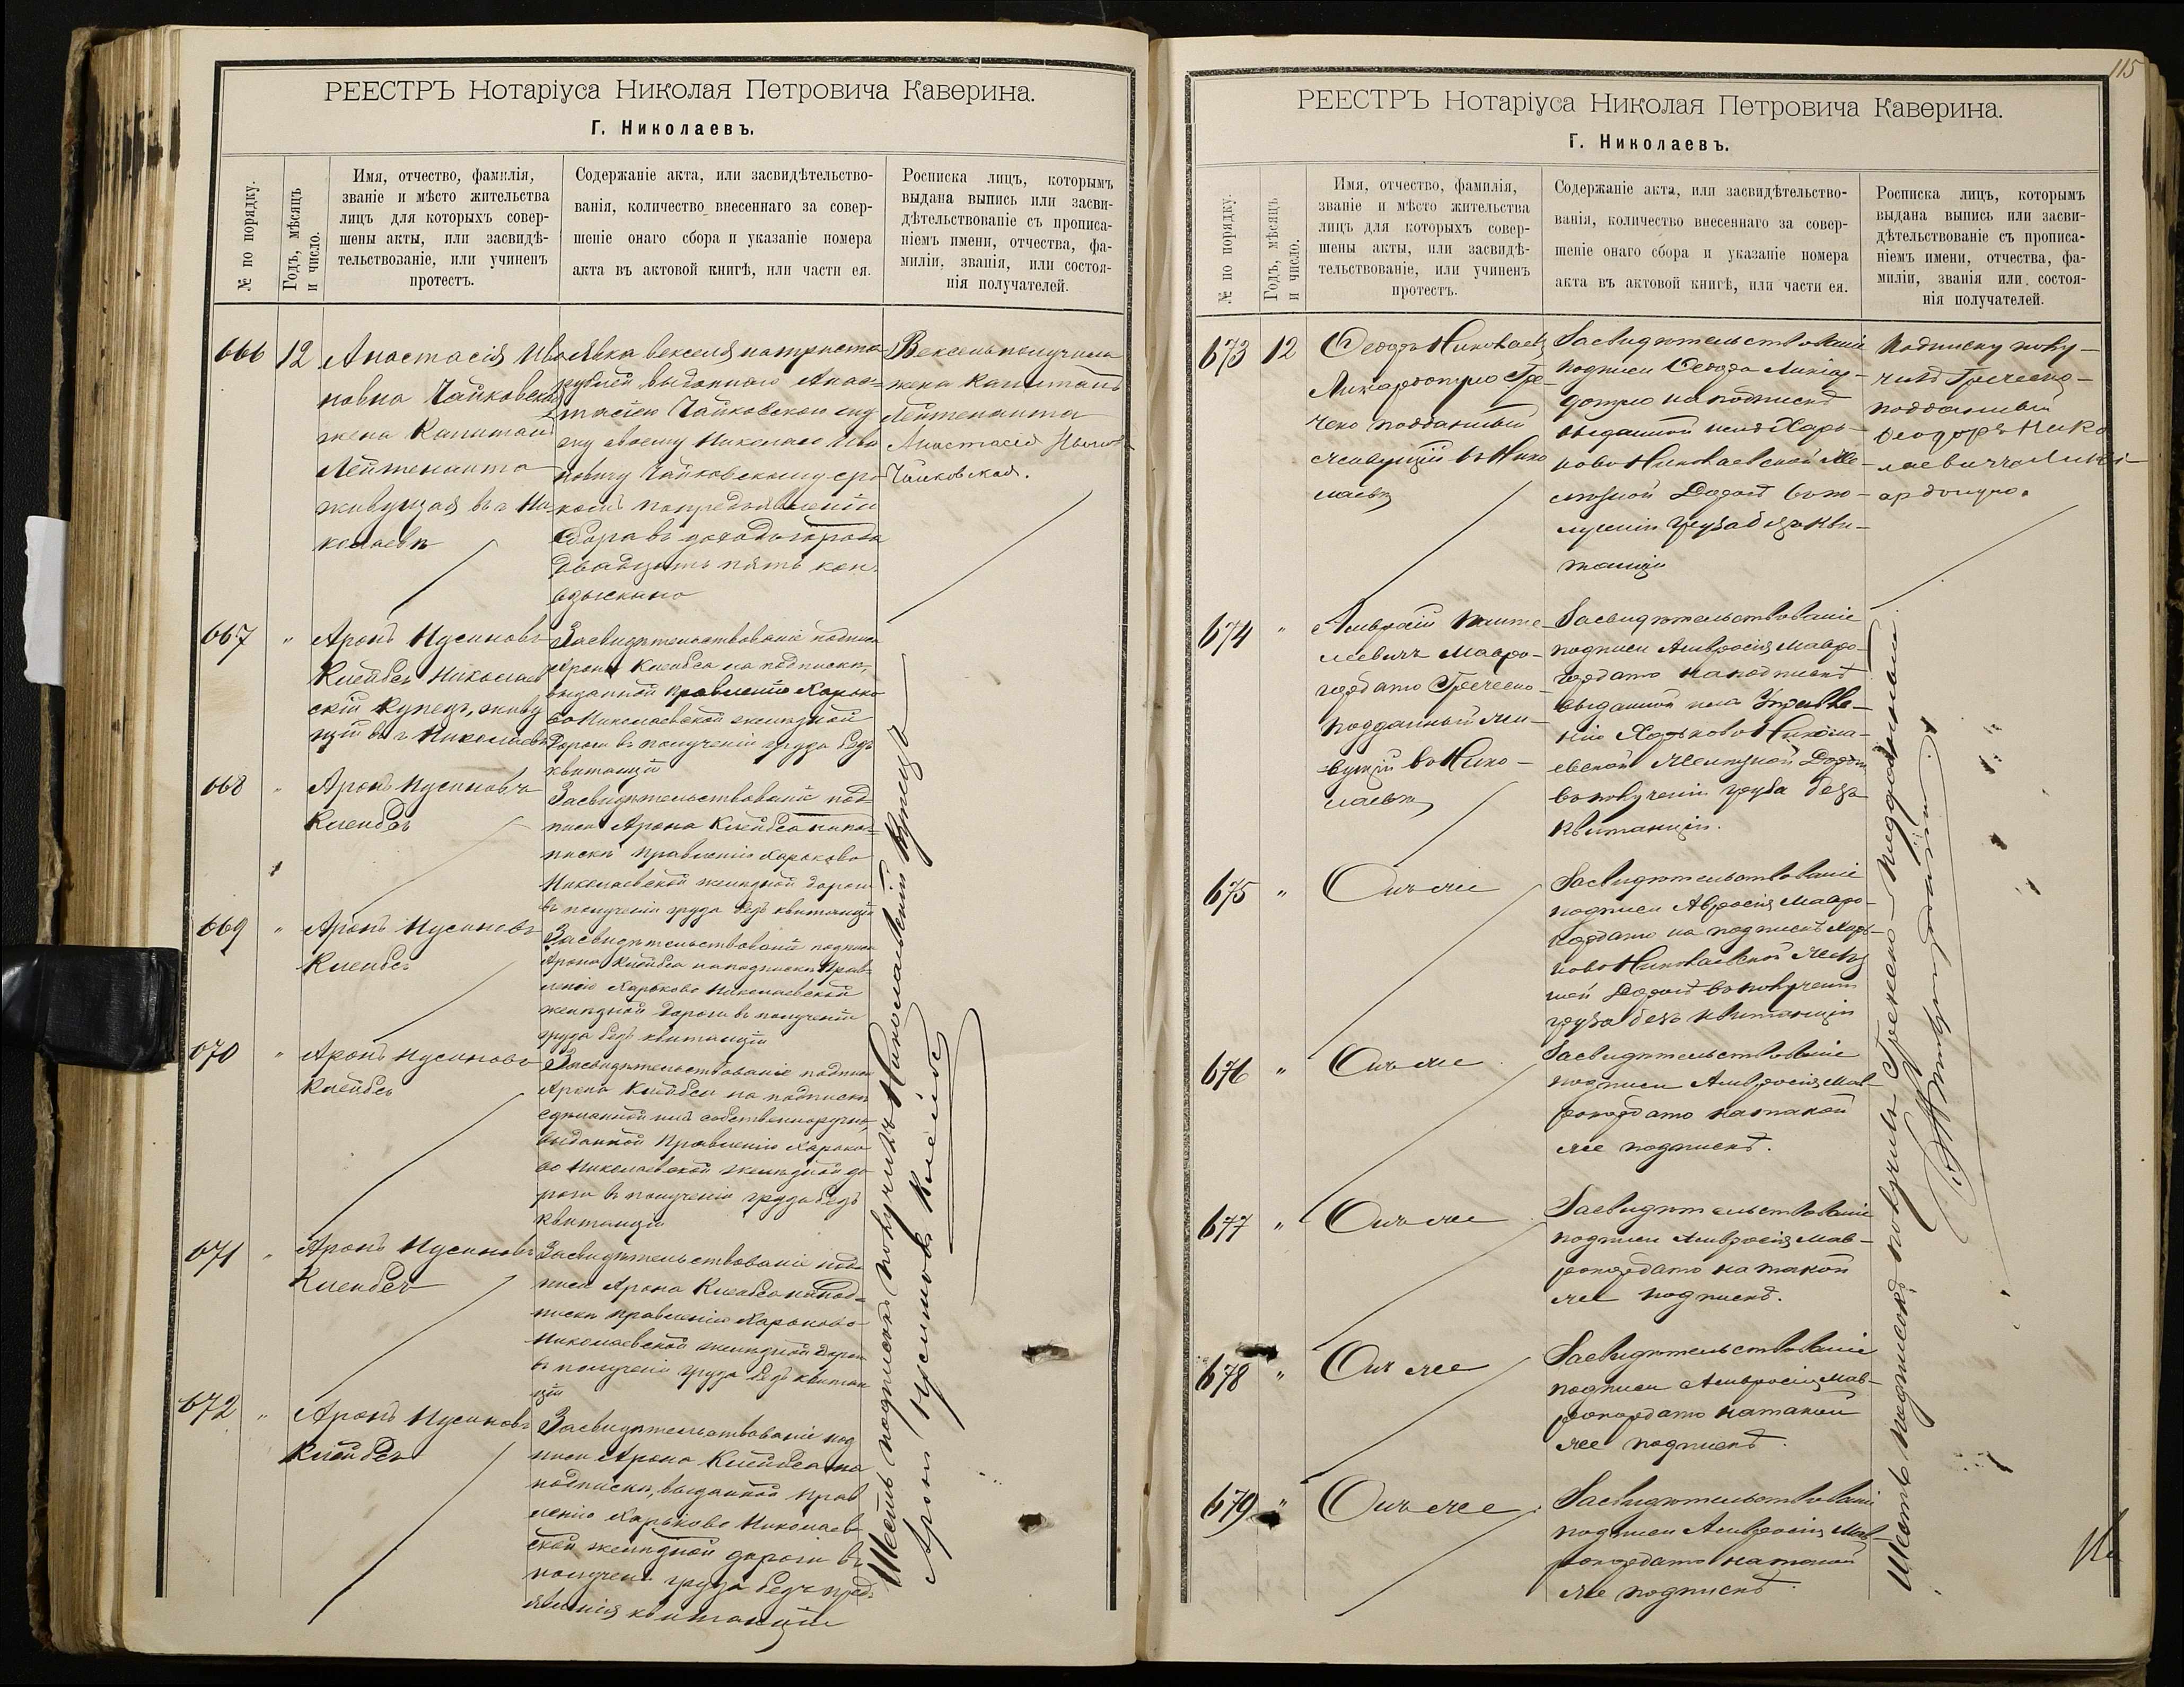 РЕЕСТРЪ Нотаріуса Николая Петровича Каверина.
Г. Николаевъ.
№ по порядку.
Годъ, мѣсяцъ
и число.
Имя, отчество, фамилія,
званіе и мѣсто жительства
лицъ для которыхъ совер-
шены акты, или засвидѣ-
тельствованіе, или учиненъ
протестъ.
Содержаніе акта, или засвидѣтельство-
ванія, количество внесеннаго за совер-
шеніе онаго сбора и указаніе номера
акта въ актовой книгѣ, или части ея.
Росписка лицъ, которымъ
выдана выпись или засви-
дѣтельствованіе съ прописа-
ніемъ имени, отчества, фа-
миліи, званія, или состоя-
нія получателей.
666 12
Анастасія Ива
новна Чайковская
жена Капитанъ
Лейтенанта
живущая въ г Ни-
колаевѣ
Явка векселя на триста
рублей выданнаго Анас-
тасіею Чайковскою
му своему Николаю Ива
новичу Чайковскому сро
комъ по предъявленіи
Сбора въ доходъ города
двадцать пять коп.
взыскано
Вексель получила
жена Капитанъ
Лейтенанта
Анастасія
Чайковская.
667 "
Аронъ Нусиновъ
Клейбсъ Николаев
скій купецъ, живу
щій въ г Николаевѣ
Засвидѣтельствованіе подписи
Арона Клейбса на подпискѣ,
выданной Правленію Харьково
Николаевской желѣзной
дороги въ полученіи груза безъ
квитанціи
668 "
Аронъ Нусиновъ
Клейбсъ
Засвидѣтельствованіе под-
писи Арона Клейбса на под-
пискѣ Правленію Харьково
Николаевской желѣзной дороги
въ полученіи груза безъ квитанціи
669 "
Аронъ Нусиновъ
Клейбсъ
Засвидѣтельствованіе подписи
Арона Клейбса на подпискѣ Прав-
ленію Харьково Николаевской
желѣзной дороги въ полученіи
груза безъ квитанціи
670 "
Аронъ Нусиновъ
Клейбсъ
Засвидѣтельствованіе подписи
Арона Клейбса на подпискѣ
сдѣланной имъ собственноручно,
выданной Правленію Харько
во Николаевской желѣзной до
роги въ полученіи груза безъ
квитанціи
671 "
Аронъ Нусиновъ
Клейбсъ
Засвидѣтельствованіе под-
писи Арона Клейбса на под-
пискѣ Правленію Харьково
Николаевской желѣзной дороги
въ полученіи груза безъ квитан
ціи
672 "
Аронъ Нусиновъ
Клейбсъ
Засвидѣтельствованіе под
писи Арона Клейбса на
подпискѣ, выданной Прав
ленію Харьково Николаев
ской желѣзной дороги въ
полученіи груза безъ пред-
явленія квитанціи
Шесть подписокъ получилъ Николаевскій Купецъ
Арон Нусинов Клейбсъ
115
РЕЕСТРЪ Нотаріуса Николая Петровича Каверина.
Г. Николаевъ.
№ по порядку.
Годъ, мѣсяцъ
и число.
Имя, отчество, фамилія,
званіе и мѣсто жительства
лицъ для которыхъ совер-
шены акты, или засвидѣ-
тельствованіе, или учиненъ
протестъ.
Содержаніе акта, или засвидѣтельство-
ванія, количество внесеннаго за совер-
шеніе онаго сбора и указаніе номера
акта въ актовой книгѣ, или части ея.
Росписка лицъ, которымъ
выдана выпись или засви-
дѣтельствованіе съ прописа-
ніемъ имени, отчества, фа-
миліи, званія или состоя-
нія получателей.
673 12
Феодоръ Николаевъ
Ликардопуло Гре-
чено подданный
живущій въ Нико
лаевѣ
Засвидѣтельствованіе
подписи Феодора Ликар-
допуло на подпискѣ
выданной имъ Харь-
ково Николаевской Же-
лезной Дорогѣ въ по-
лученіи груза безъ кви-
танціи
Подписку полу-
чилъ Греческо-
подданный
Феодоръ Нико
лаевичъ Лики
ардопуло.
674 "
Амвросій Панте-
леевичъ Мавро-
гордато Греческо-
подданный жи-
вущій въ Нико-
лаевѣ
Засвидѣтельствованіе
подписи Амвросія Мавро-
гордато на подпискѣ
выданной имъ Управле-
нію Харьково Никола-
евской Желѣзной Дороги
въ полученіи груза безъ
квитанціи.
675 "
Онъ же
Засвидѣтельствованіе
подписи Авросія Мавро-
гордато на подпискѣ Харь-
ково Николаевской Желѣз
ной Дорогѣ въ полученіи
груза безъ квитанціи
676 "
Онъ же
Засвидѣтельствованіе
подписи Амвросія Мав-
рогордато на такой
же подпискѣ.
677 "
Онъ же
Засвидѣтельствованіе
подписи Амвросія Мав-
рогордато на такой
же подпискѣ.
678 "
Онъ же
Засвидѣтельствованіе
подписи Амвросія Мав-
рогордато на такой
же подпискѣ.
679 "
Онъ же.
Засвидѣтельствованіе
подписи Амвросія Мав-
рогордато на такой
же подпискѣ.
Шесть подписокъ получилъ Греческо-подданный